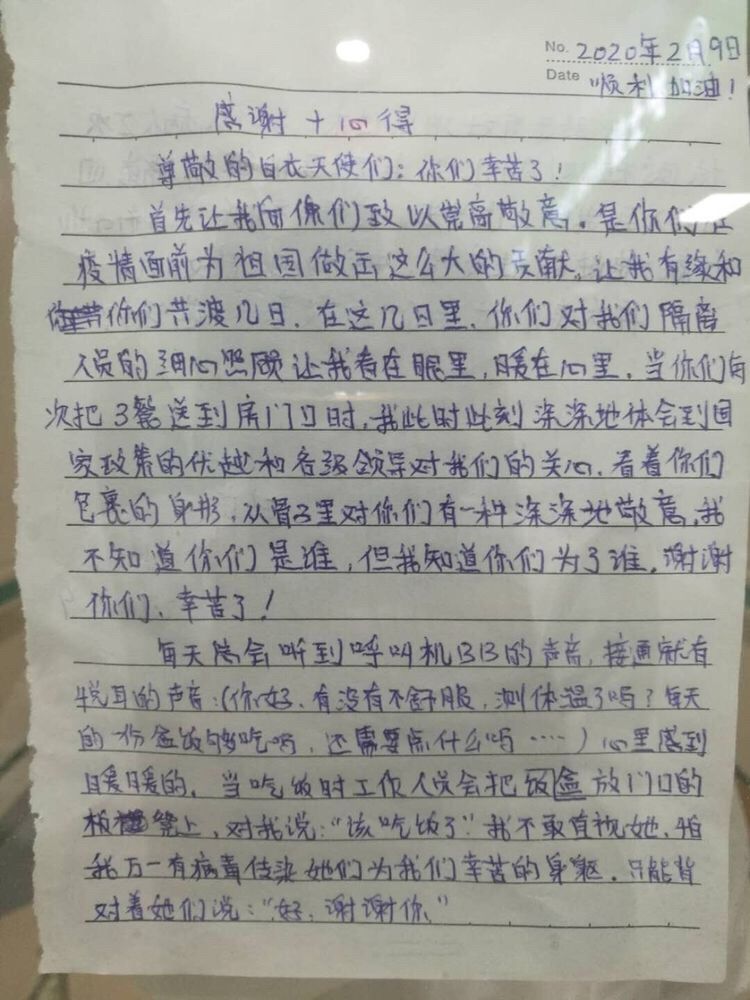 No. 2020年2月9日
Date 顺利加油!
感谢+心得
尊敬的白衣天使们:你们辛苦了!
首先让我向你们致以崇高敬意。是你们在
疫情面前为祖国做出这么大的贡献。让我有缘和
你们共渡几日。在这几日里,你们对我们隔离
人员的细心照顾让我看在眼里,暖在心里。当你们每
次把3餐送到房门口时,我此时此刻深深地体会到国
家政策的优越和各级领导对我们的关心。看着你们
包裹的身形,从骨子里对你们有一种深深地敬意,我
不知道你们是谁,但我知道你们为了谁。谢谢
你们、辛苦了!
每天房会听到呼叫机BB的声音,接通就有
悦耳的声音:(你好,有没有不舒服,测体温了吗?每天
的一份盒饭够吃吗,还需要点什么吗……)心里感到
暖暖的。当吃饭时工作人员会把饭盒放门口的
板凳上,对我说:“该吃饭了”我不敢直视她,怕
我万一有病毒传染她们为我们辛苦的身躯。只能背
对着她们说:“好、谢谢你、”